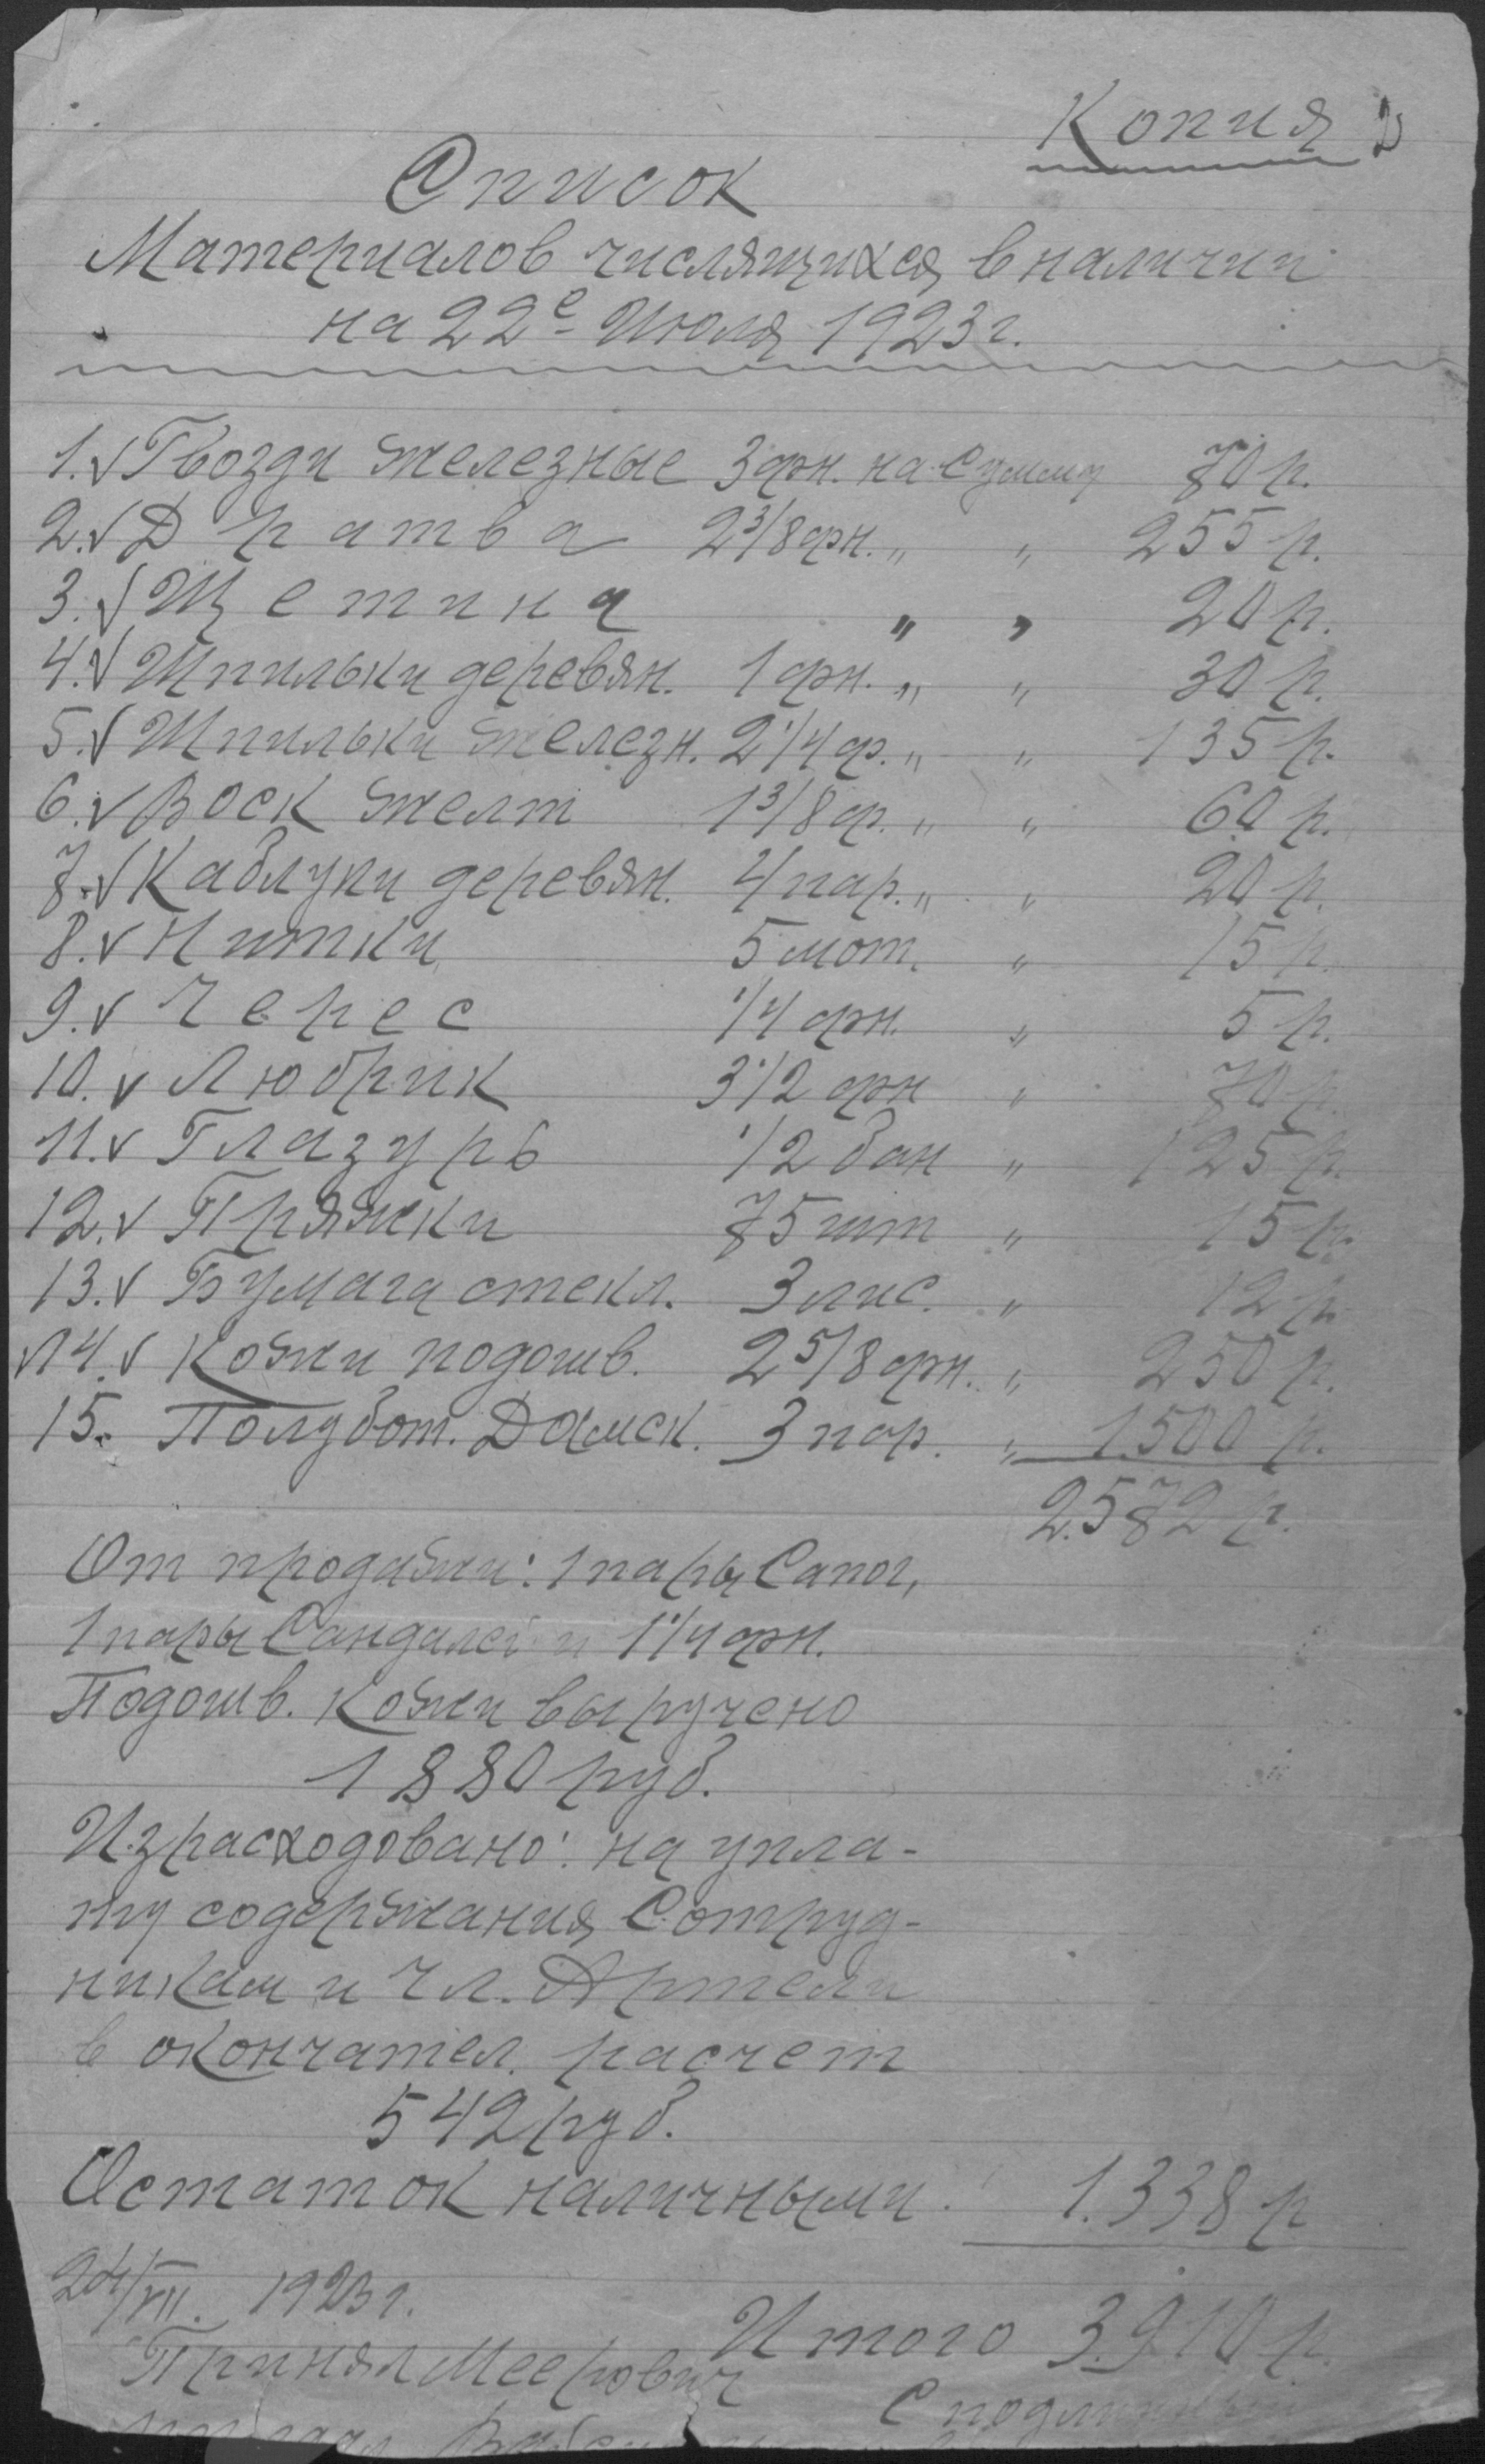 Копия
Список
Материалов числящихся в наличии
на 22е Июля 1923 г.
1. √ Гвозди железные 3 фн. на Сумму 70 р.
2. √ Дратва 2 3/8 фн. „ „ 255 р.
3. √ Щетина „ „ 20 р.
4. √ Шпильки деревян. 1 фн. „ „ 30 р.
5. √ Шпильки железн. 2 1/4 ф. „ „ 135 р.
6. √ Воск желт 1 3/8 ф. „ „ 60 р.
7. √ Каблуки деревян. 4 пар. „ „ 20 р.
8. √ Нитки 5 мот. „ 15 р.
9. √ Черес 1/4 фн. „ 5 р.
10. √ Любрик 3 1/2 фн „ 70 р.
11. √ Глазурь 1/2 бан „ 125 р.
12. √ Пряжки 75 шт „ 15 р.
13. √ Бумага стекл. 3 лис. „ 12 р.
√ 14. √ Кожи подошв. 2 5/8 фн. „ 250 р.
15. Полубот. Дамск. 3 пар. „ 1.500 р.
2.572 р.
От продажи: 1 пары Сапог,
1 пары Сандалей и 1 1/4 фн.
Подошв. Кожи выручено
1880 руб.
Израсходовано: на упла-
ту содержания Сотруд-
никам и Чл. Артели
в окончател. расчет
542 руб.
Остаток наличными. 1.338 р
24/VII. 1923 г.
Итого 3.910 р.
Принял Меерович
С подлинным